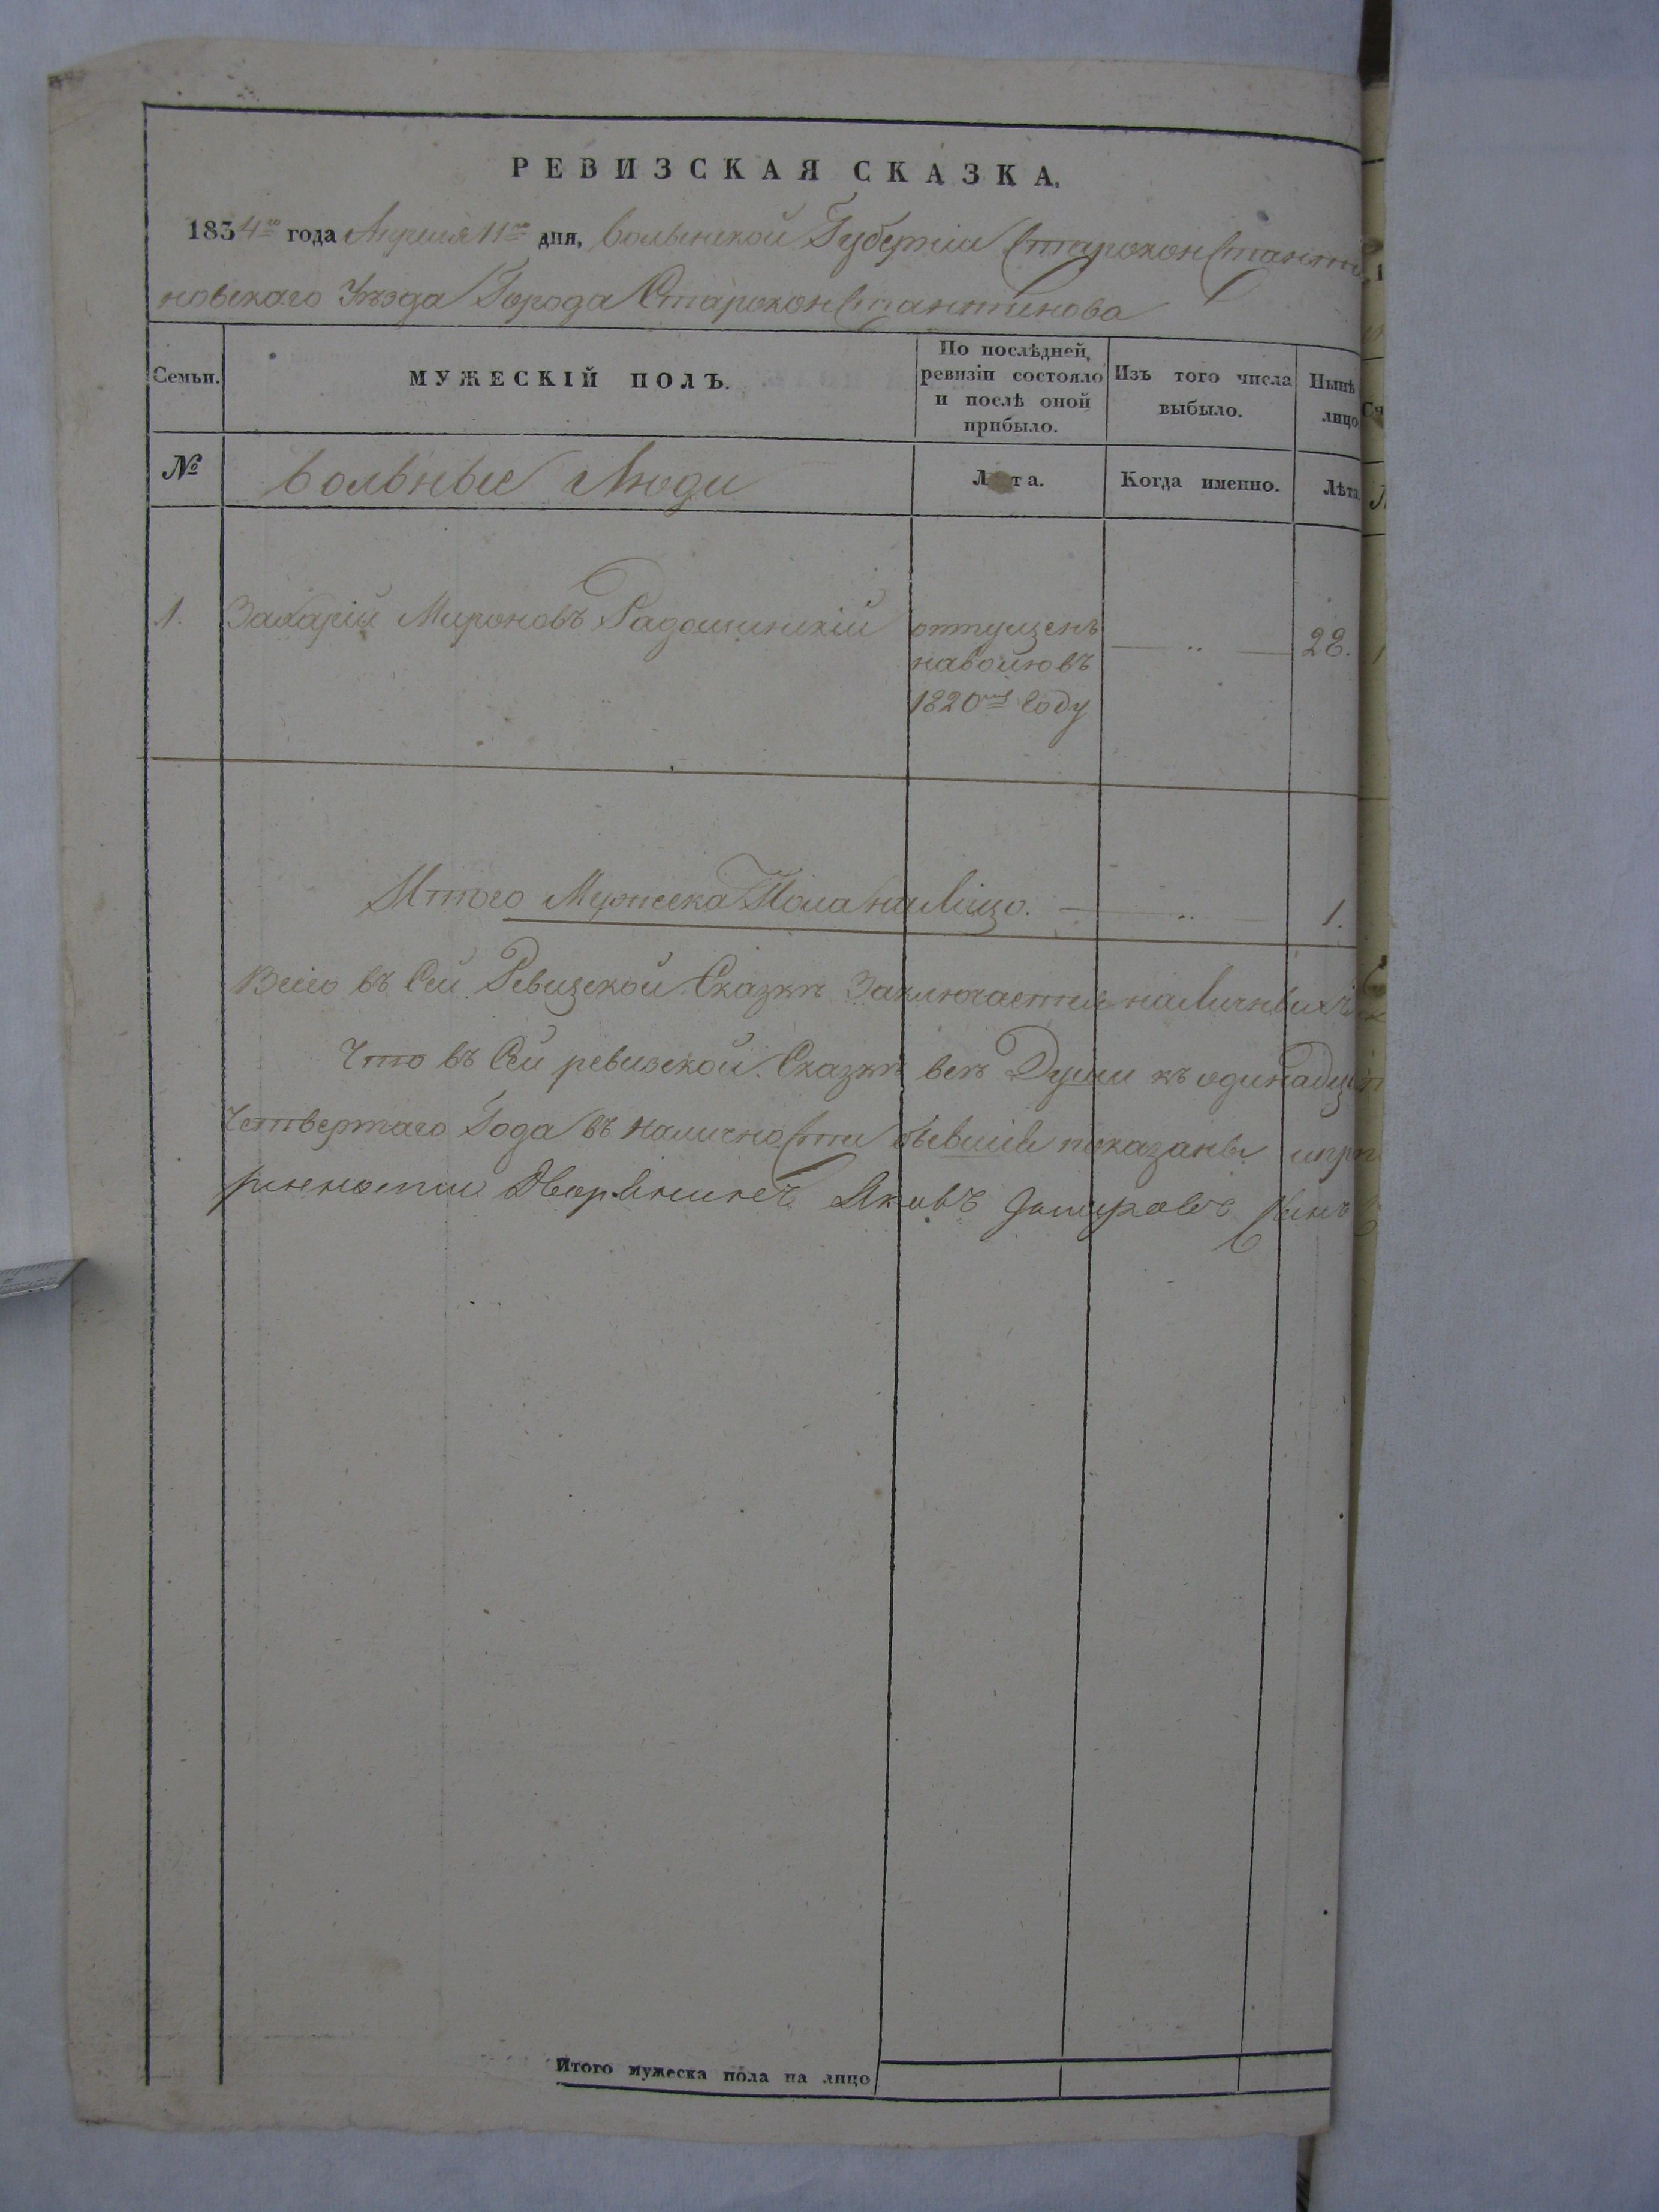 РЕВИЗСКАЯ СКАЗКА.
1834го года Апреля 11го дня, Волынской Губерніи Староконстанти
новскаго Уѣзда Города Староконстантинова
Семьи.
МУЖЕСКІЙ ПОЛЪ.
По послѣдней ревизіи состояло и послѣ оной прибыло.
Изъ того числа выбыло.
Нынѣ лицо
№
Вольные Люди
Лѣта.
Когда именно.
Лѣта.
1. Захарій Мироновъ Радошинскій
отпущенъ
наволювъ
1820мъ Году
— „ —
28.
Итого Мужеска Пола на Лицо. — „ — 1.
Всего въ Сей Ревизской Сказкѣ Заключается наличныхъ
Что въ Сей ревизской Сказкѣ всѣ Души къ одинадцат
Четвертаго Года въ наличности бывшіе показаны ипр
Дворянинъ Яковъ Сынъ
Итого мужеска пола на лицо